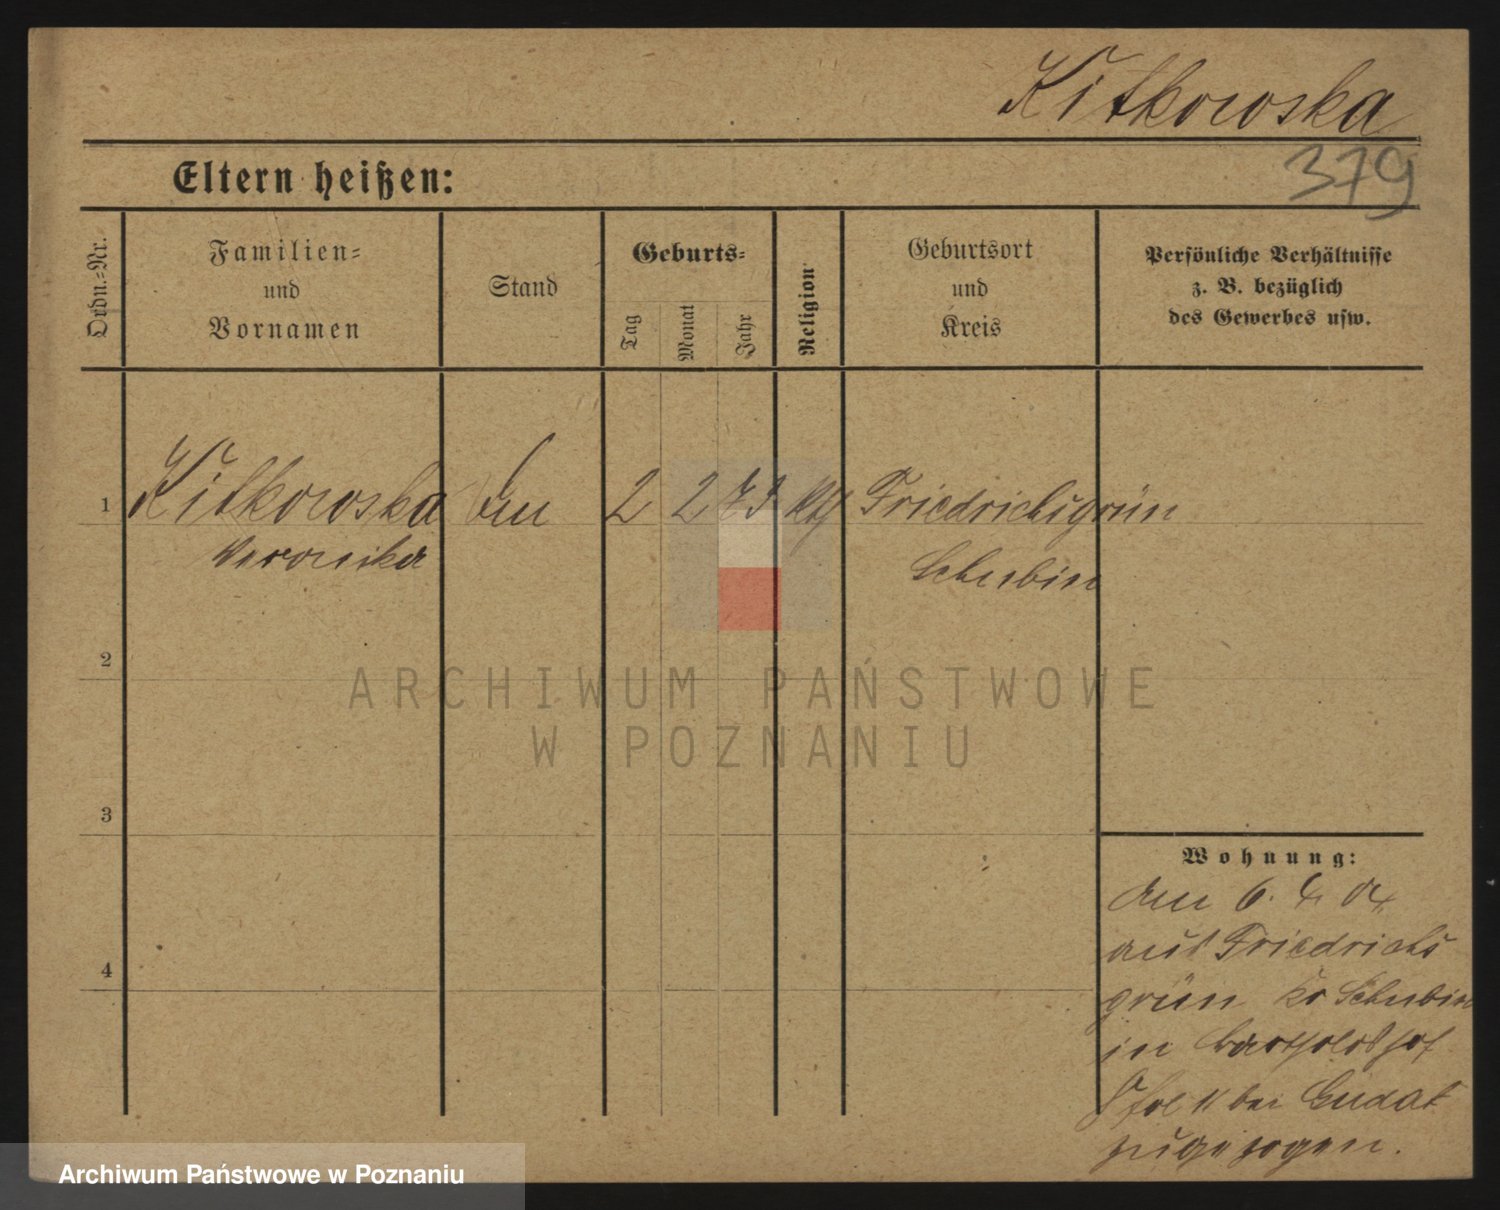 Kitkowska
379
Eltern heißen:
Ordn.-Nr.
Familien-
und
Vornamen
Stand
Geburts-
Tag
Monat
Jahr
Religion
Geburtsort
und
Kreis
Persönliche Verhältnisse
z. B. bezüglich
des Gewerbes usw.
1 Kitkowska 2 2 73 kth Friedrichsgrün
Veronika Schubin
2
ARCHIWUM PAŃSTWOWE
W POZNANIU
3
Wohnung:
am 6. 4. 04
aus Friedrichs
4
grün Kr Schubin
in Bartholdshof
bei Gudat
zugezogen.
Archiwum Państwowe w Poznaniu